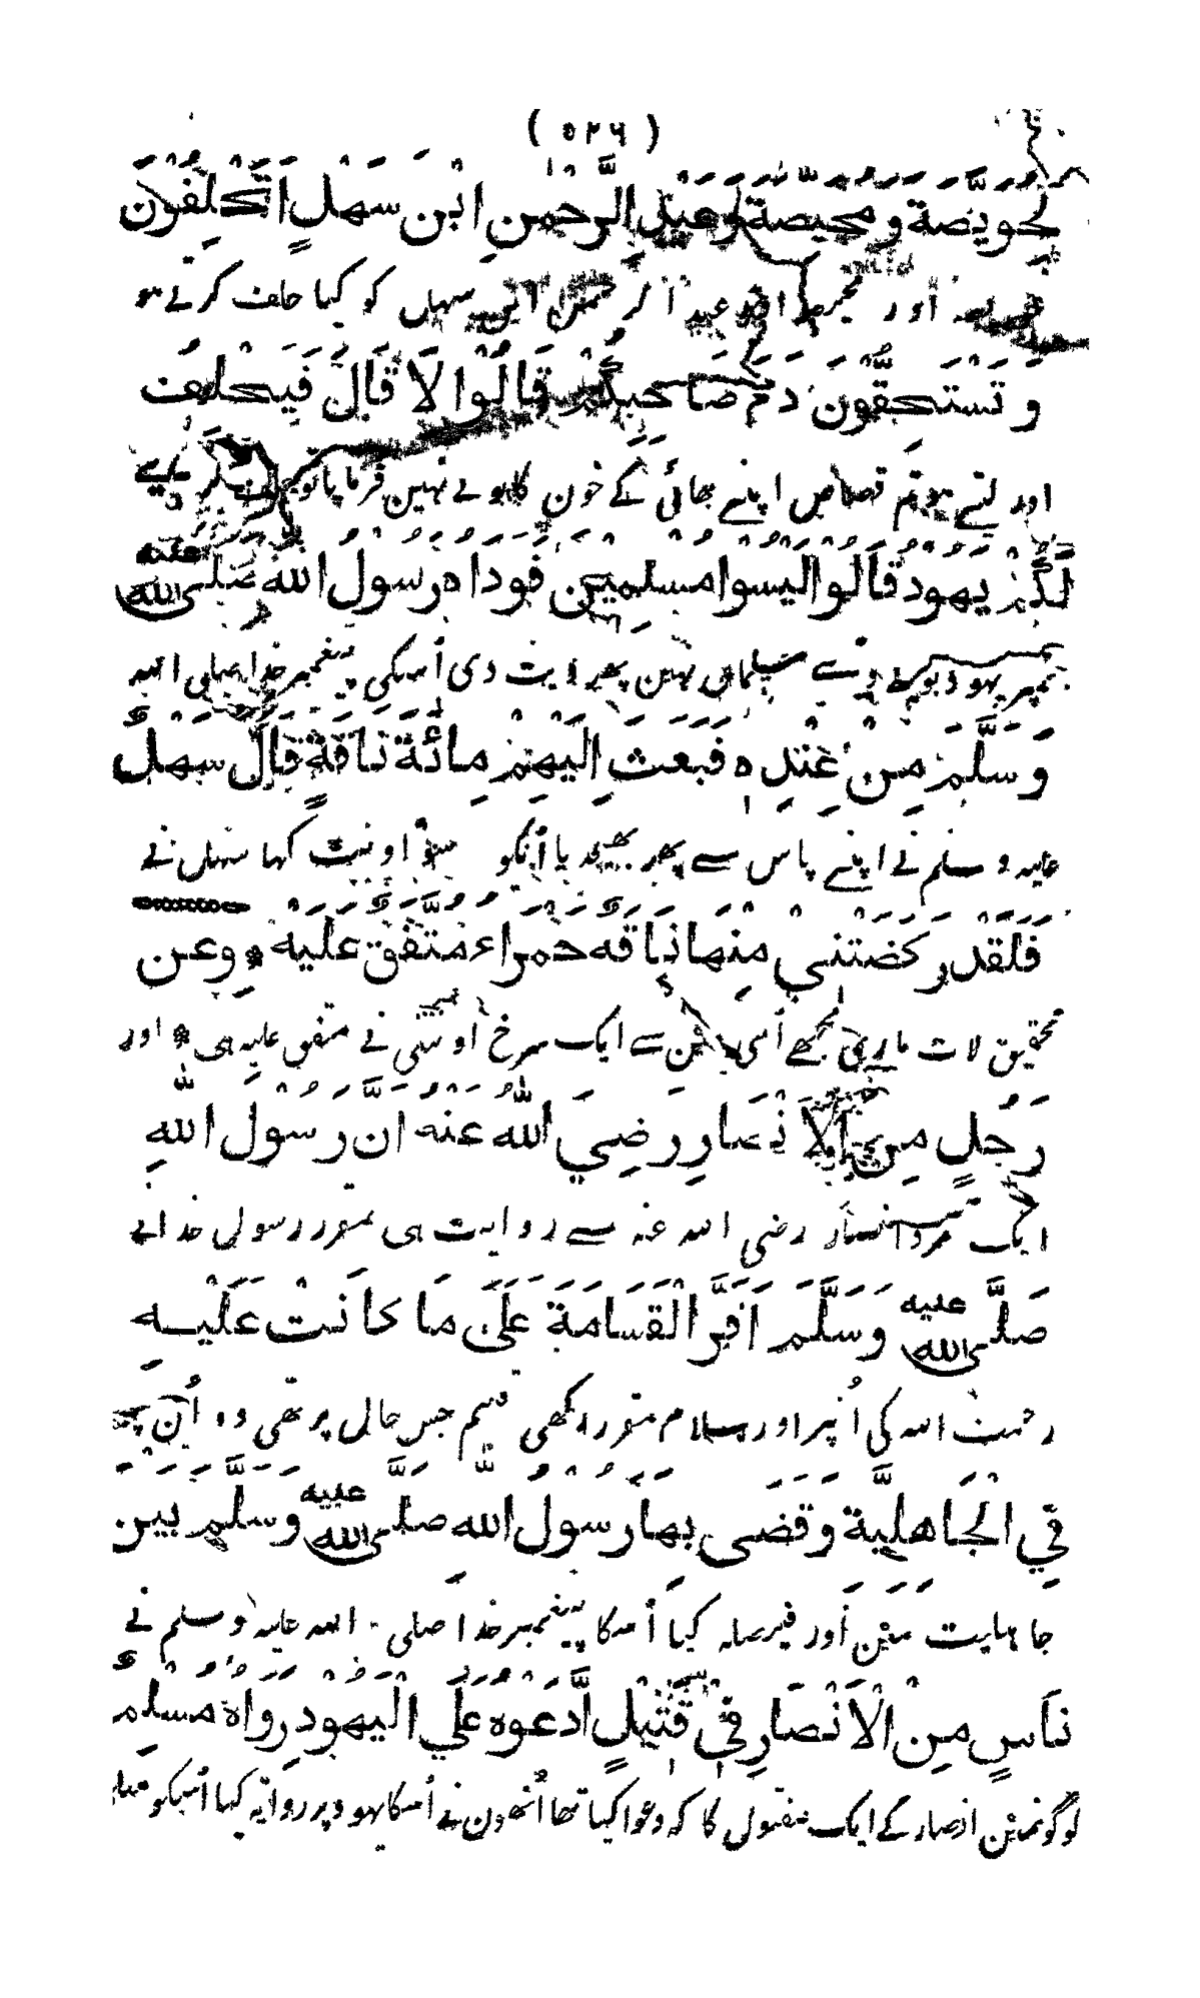 ( ٥٢٦ )
لِحُوَيِّصَةَ وَمُحَيِّصَةَ وَعَبْدِ الرَّحْمٰنِ ابْنِ سَهْلٍ اَتَحْلِفُوْنَ
اور عبد الرحمن ابن سہل کو کیا حلف کرتے ہو
وَتَسْتَحِقُّوْنَ دَمَ صَاحِبِكُمْ قَالُوْا لَا قَالَ فَيَحْلِفُ
اور لیتے ہو تم قصاص اپنے بھائی کے خون کا بولے نہین فرمایا
لَكُمْ يَهُوْدُ قَالُوْا لَيْسُوْا مُسْلِمِيْنَ فَوَدَاهُ رَسُوْلُ اللّٰهِ صَلَّى اللّٰهُ عَلَيْهِ
تمپر یہود بولے وے مسلمان نہین پھر دیت دی اُسکی پیغمبر خدا صلی اللہ
وَسَلَّمَ مِنْ عِنْدِهٖ فَبَعَثَ اِلَيْهِمْ مِائَةَ نَاقَةٍ قَالَ سَهْلٌ
علیہ و سلم نے اپنے پاس سے پھر بھیجدیا اُنکو سو اونٹ کہا سہل نے
فَلَقَدْ رَكَضَتْنِيْ مِنْهَا نَاقَةٌ حَمْرَاءُ مُتَّفَقٌ عَلَيْهِ * وَعَنْ
تحقیق لات ماری مجھے اُس مین سے ایک سرخ اونٹنی نے متفق علیہ ہی * اور
رَجُلٍ مِنَ الْاَنْصَارِ رَضِيَ اللّٰهُ عَنْهُ اَنَّ رَسُوْلَ اللّٰهِ
ایک مرد انصار رضی اللہ عنہ سے روایت ہی مقرر رسول خدا نے
صَلَّى اللّٰهُ عَلَيْهِ وَسَلَّمَ اَقَرَّ الْقَسَامَةَ عَلٰى مَا كَانَتْ عَلَيْهِ
رحمت اللہ کی اُنپر اور سلام مقرر رکھی قسم جس حال پر تھی وہ اُن پر
فِي الْجَاهِلِيَّةِ وَقَضٰى بِهَا رَسُوْلُ اللّٰهِ صَلَّى اللّٰهُ عَلَيْهِ وَسَلَّمَ بَيْنَ
جاہلیت مین اور فیصلہ کیا اُسکا پیغمبر خدا صلی اللہ علیہ وسلم نے
نَاسٍ مِنَ الْاَنْصَارِ فِيْ قَتِيْلٍ اِدَّعَوْهُ عَلَى الْيَهُوْدِ رَوَاهُ مُسْلِمٌ
لوگونمین انصار کے ایک مقتول کا کہ دعوا کیا تھا اُنھون نے اُسکا یہود پر روایت کیا اُسکو